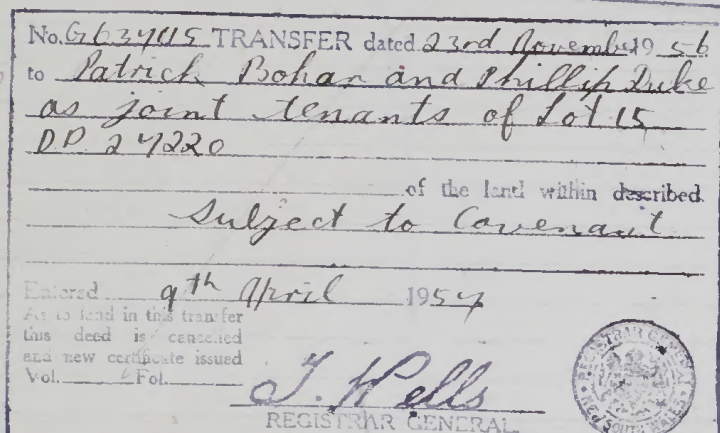 No. G634015 TRANSFER dated 23rd November 1956
to Patrick Bohan and Phillip Duke
as joint tenants of Lot 15
DP 27220
of the land within described.
Subject to Covenant
Entered 9th April 1957
As to land in this transfer
this deed is cancelled
and new certificate issued
Vol. Fol.
J. Wells
REGISTRAR GENERAL
REGISTRAR GENERAL
NEW SOUTH WALES